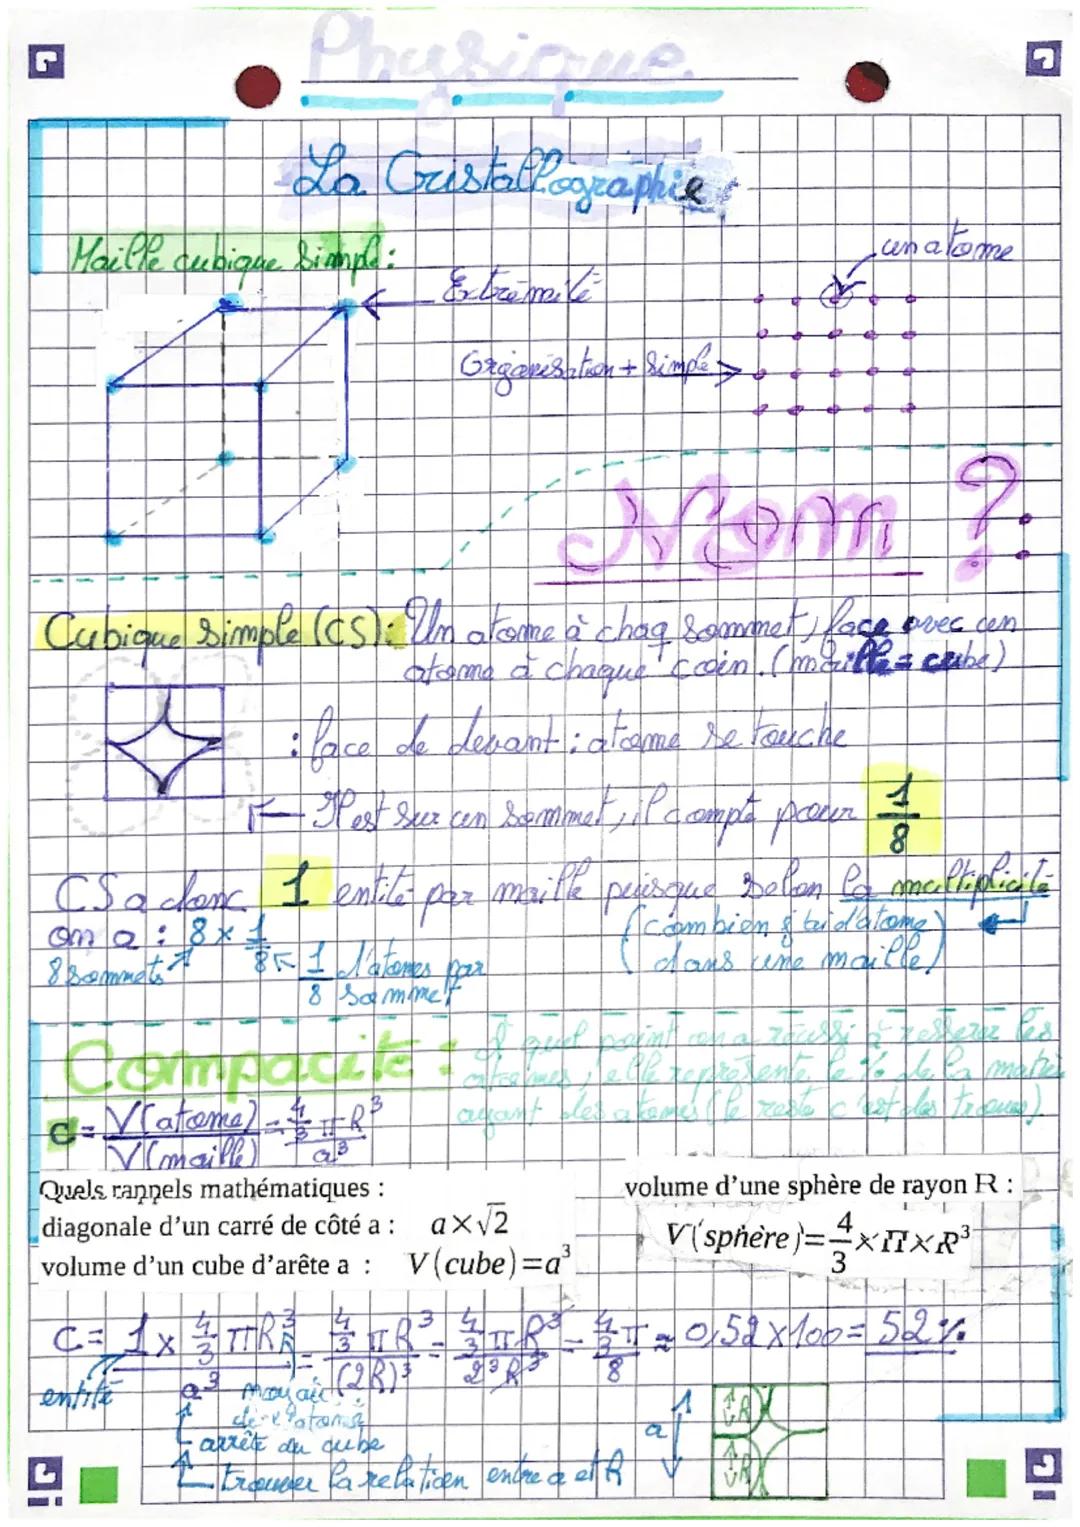 Physique
La Cristallographie
Maille cubique simple :
un atome
Extrémité
Organisation + simple
Nom ?
Cubique simple (CS) : Un atome à chaq sommet, face avec un
atome à chaque coin. (maille = cube)
: face de devant : atome se touche
Il est sur un sommet, il compte pour 1/8
CS a donc 1 entité par maille puisque selon la multiplicité
on a : 8 × 1/8
(combien d'atome
dans une maille)
8 sommets
1/8 d'atomes par
sommet
Compacité : A quel point on a réussi à resserer les
atomes, elle représente le % de la matière
ayant des atomes (le reste c'est des trous)
C = V(atome)/V(maille) = 4/3 π R³/a³
Quels rappels mathématiques :
diagonale d'un carré de côté a : a×√2
volume d'un cube d'arête a : V(cube)=a³
volume d'une sphère de rayon R :
V(sphère)=4/3×Π×R³
C = 1 × 4/3 π R³/a³ = 4/3 π R³/(2R)³ = 4/3 π R³/2³ R³ = 4/3 π/8 ≈ 0,52 × 100 = 52 %
entité
de l'atome
arrête du cube
trouver la relation entre a et R
a
R
R